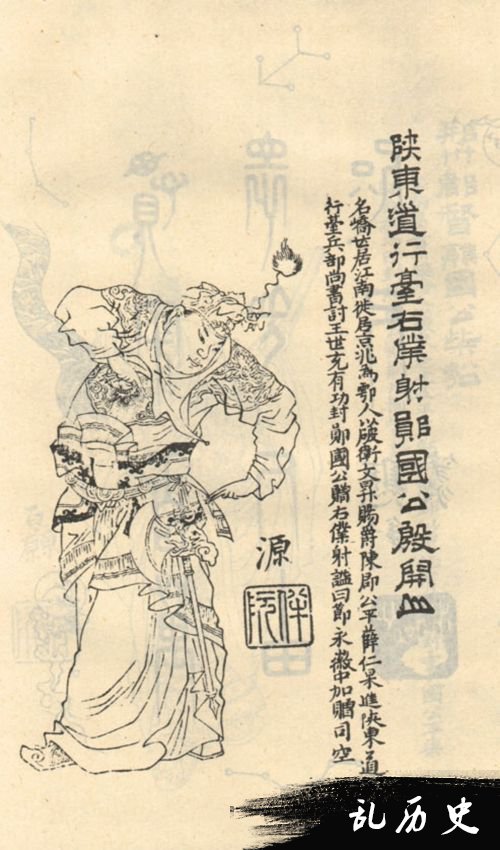 陝東道行臺右僕射鄖國公殷開山
名嶠世居江南徙居京兆為鄠人以破衛文昇賜爵陳郡公平薛仁杲進陝東道
行臺兵部尚書討王世充有功封鄖國公贈右僕射諡曰節永徽中加贈司空
源
伴阮
乱历史